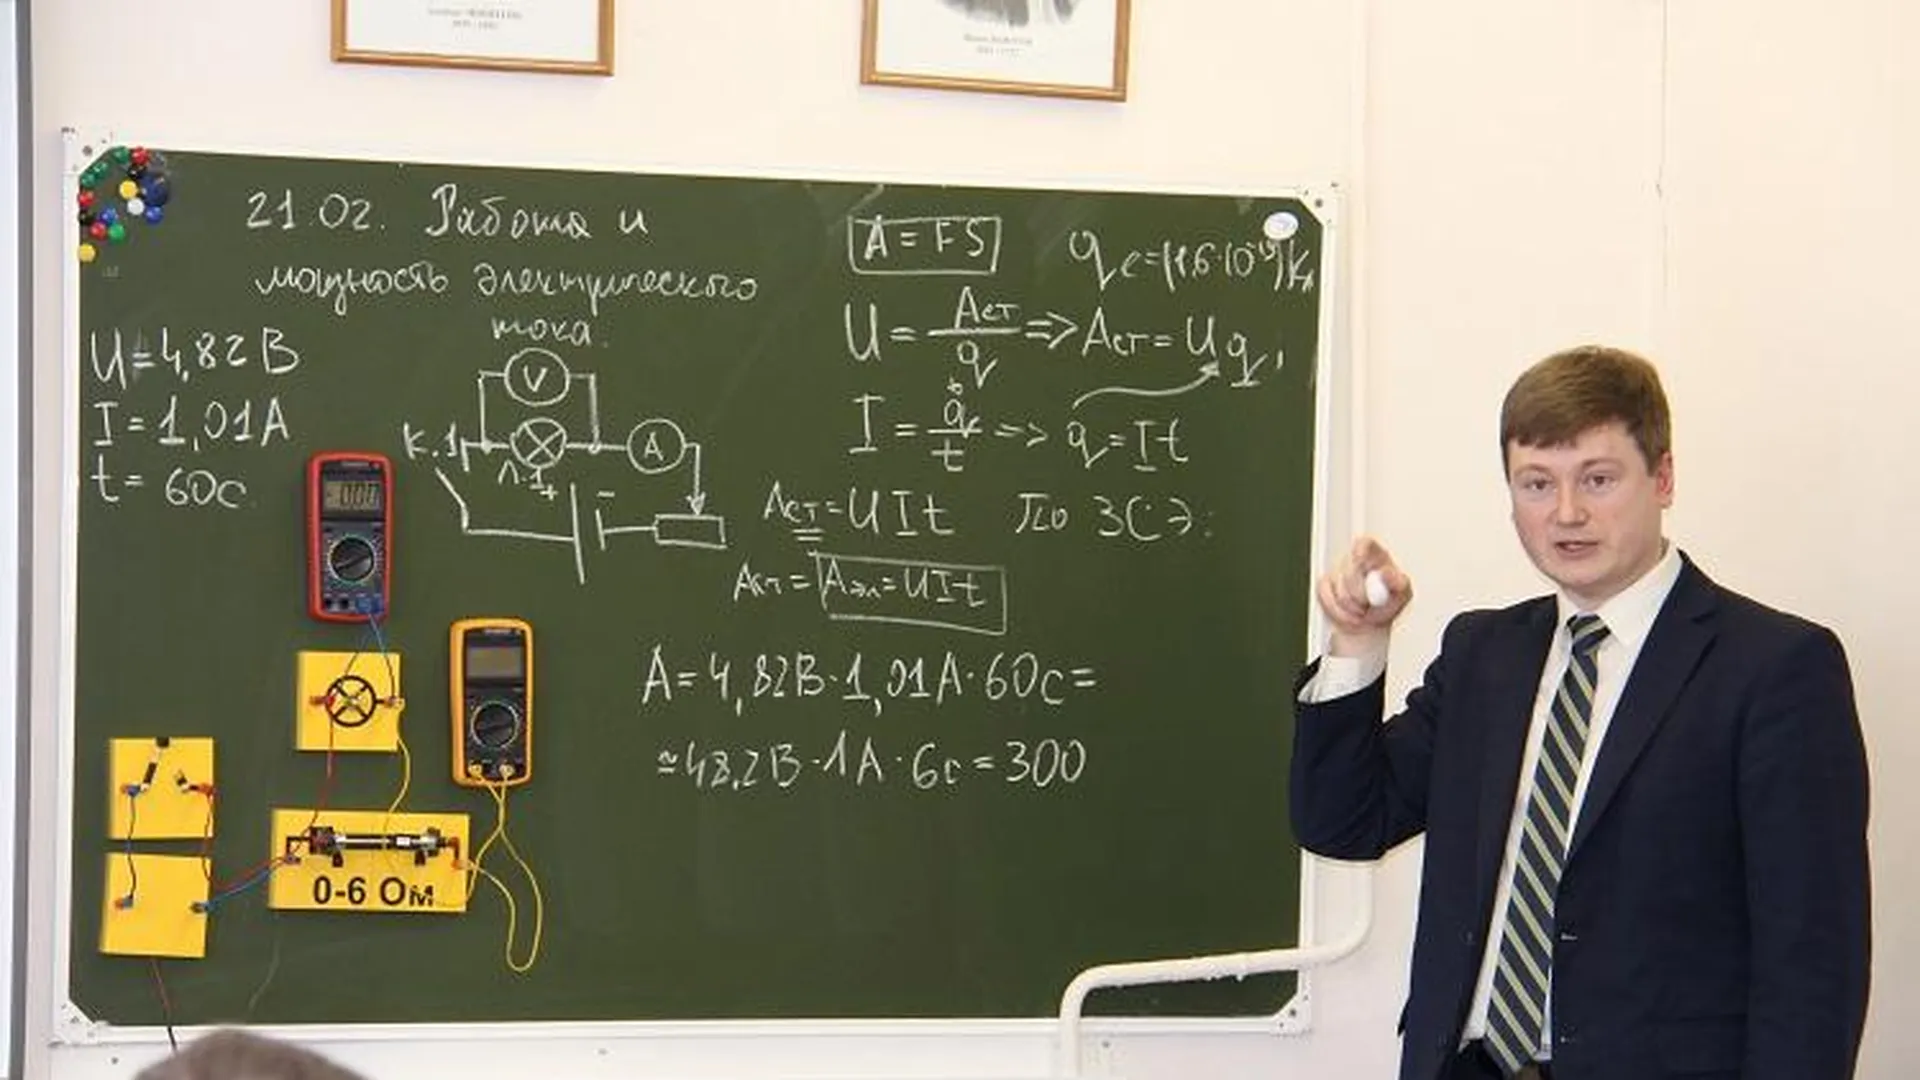 21.02. Работа и
мощность электрического
тока.
U=4,82В
I=1,01А
t=60с
V
К.1
Л.1
А
+
-
A=FS
qe=|1,6·10⁻¹⁹|Кл
U=Aст/q=>Aст=Uq,
I=q/t=>q=It
Aст=UIt По ЗСЭ:
Aст=Aэл=UIt
A=4,82В·1,01А·60с=
≈48,2В·1А·6с=300
000
0-6 Ом